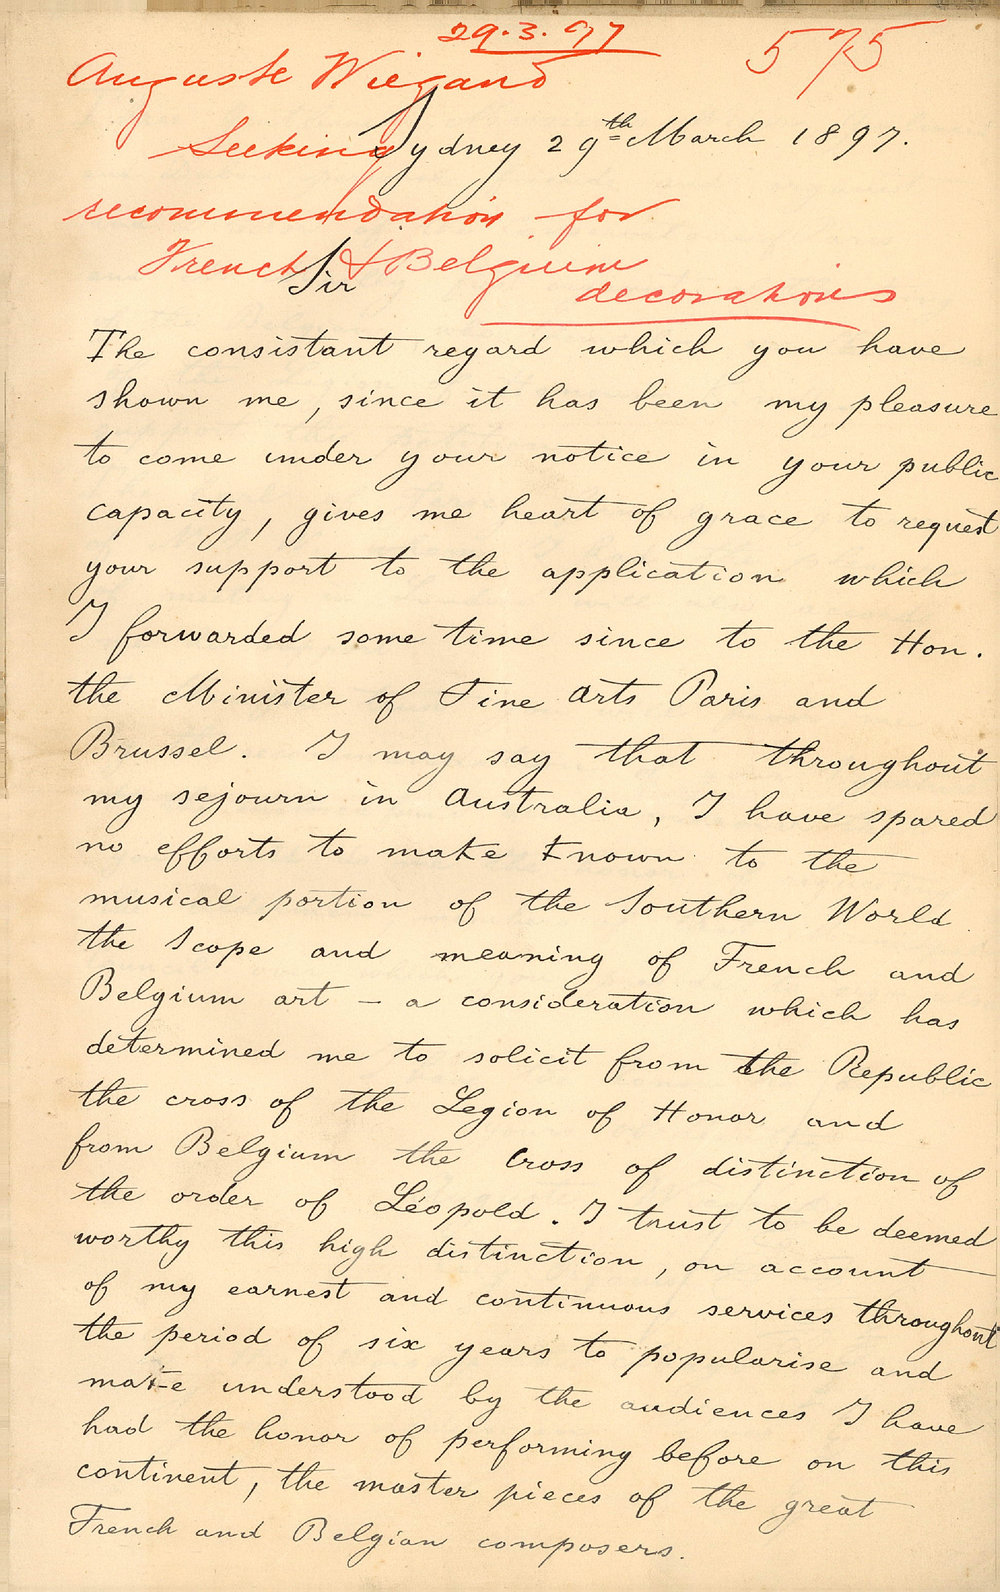 29.3.97
575
Auguste Wiegand
Seeking
Sydney 29th March 1897.
recommendation for
French & Belgium
Sir
decorations
The consistant regard which you have
shown me, since it has been my pleasure
to come under your notice in your public
capacity, gives me heart of grace to request
your support to the application which
I forwarded some time since to the Hon.
the Minister of Fine Arts Paris and
Brussel. I may say that throughout
my sejourn in Australia, I have spared
no efforts to make known to the
musical portion of the Southern World
the Scope and meaning of French and
Belgium art – a consideration which has
determined me to solicit from the Republic
the cross of the Legion of Honor and
from Belgium the Cross of distinction of
the order of Léopold. I trust to be deemed
worthy this high distinction, on account
of my earnest and continuous services throughout
the period of six years to popularise and
make understood by the audiences I have
had the honor of performing before on this
continent, the master pieces of the great
French and Belgian composers.